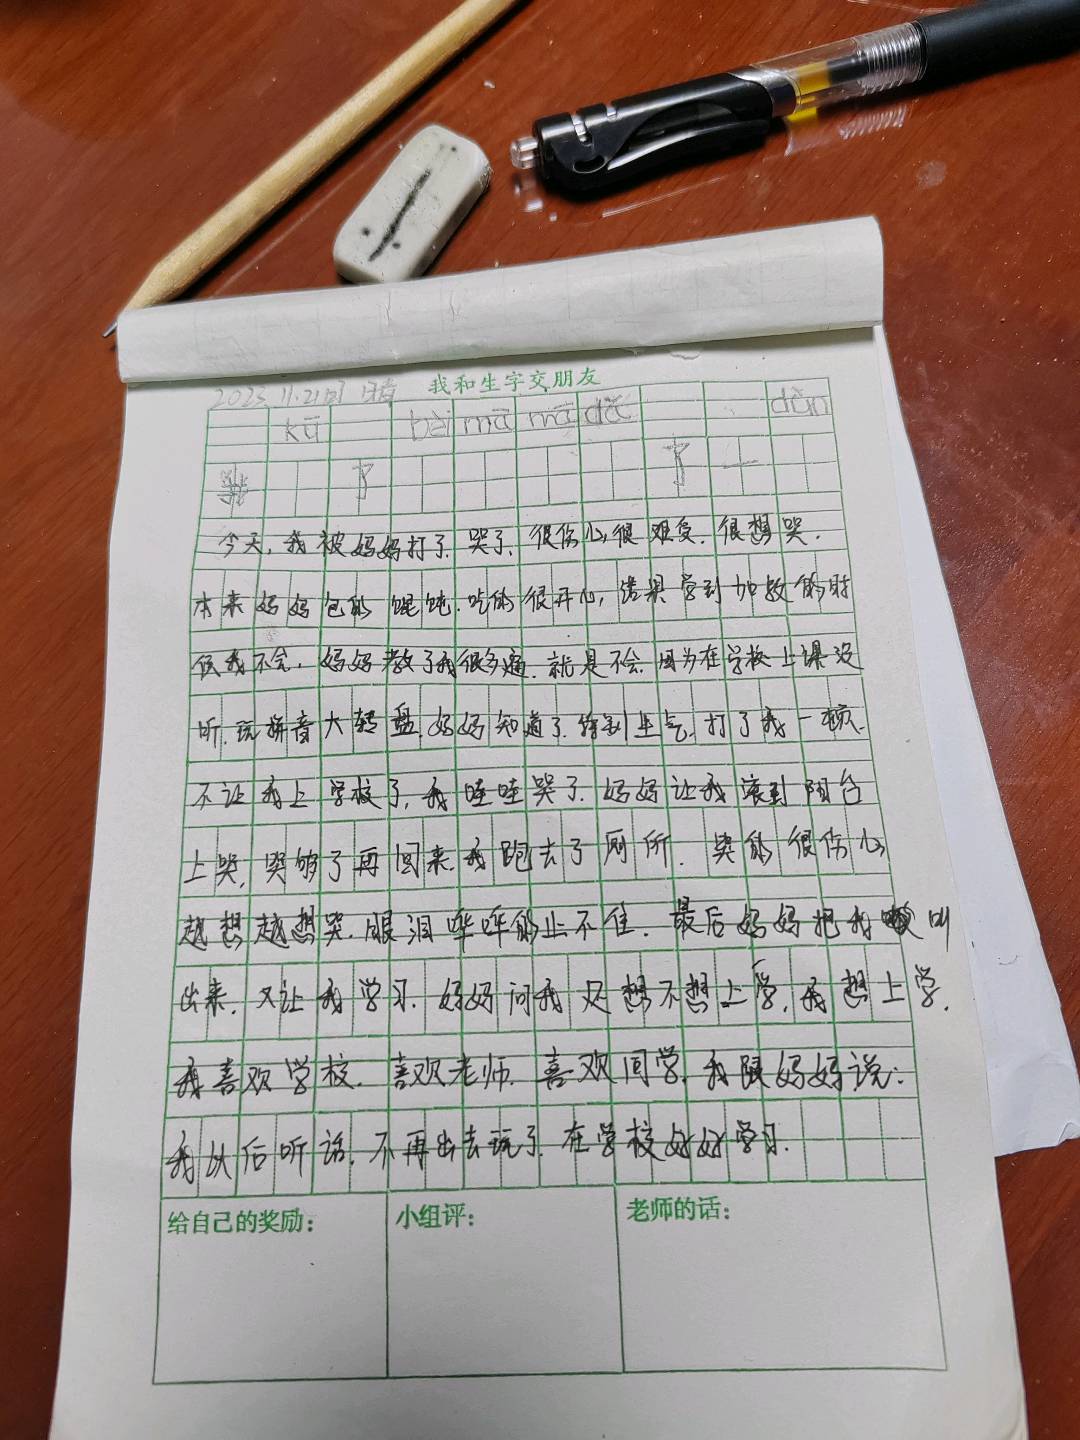 我和生字交朋友
2023 11.21日 晴
kū bèi mā mā dǎ dùn
我 了 了 一
今天,我被妈妈打了.哭了.很伤心,很难受.很想哭.
本来妈妈包的馄饨.吃的很开心,结果学到加数的时
候我不会,妈妈教了我很多遍.就是不会.因为在学校上课没
听.玩拼音大转盘.妈妈知道了.特别生气.打了我一顿.
不让我上学校了,我哇哇哭了.妈妈让我滚到阳台
上哭,哭够了再回来.我跑去了厕所.哭的很伤心
越想越想哭.眼泪哗哗的止不住.最后妈妈把我叫
出来.又让我学习.妈妈问我还想不想上学,我想上学.
我喜欢学校.喜欢老师.喜欢同学.我跟妈妈说:
我以后听话,不再出去玩了.在学校好好学习.
给自己的奖励: 小组评: 老师的话: